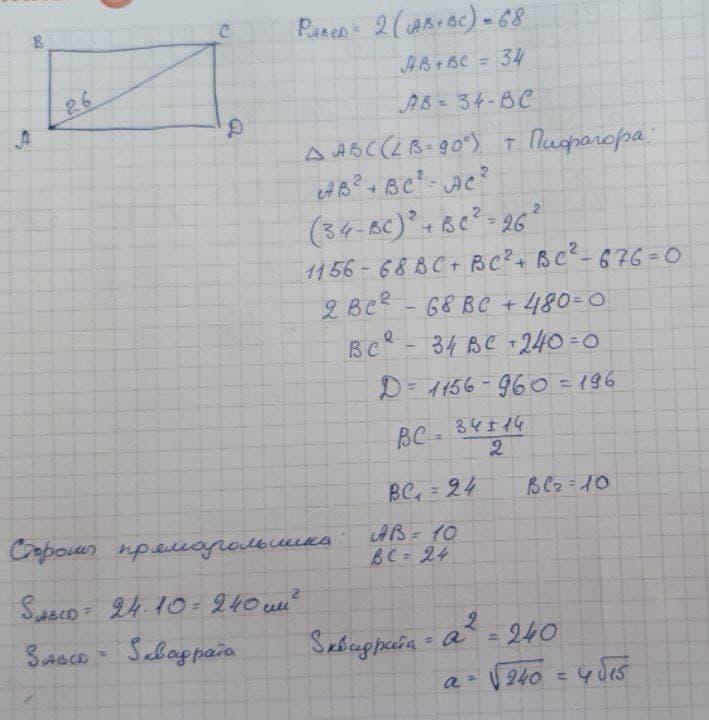 B C
26
A D
P_ABCD = 2(AB+BC) = 68
AB+BC = 34
AB = 34-BC
△ ABC (∠B=90°) т. Пифагора:
AB² + BC² = AC²
(34-BC)² + BC² = 26²
1156 - 68 BC + BC² + BC² - 676 = 0
2 BC² - 68 BC + 480 = 0
BC² - 34 BC + 240 = 0
D = 1156 - 960 = 196
BC = (34 ± 14)/2
BC₁ = 24 BC₂ = 10
Стороны прямоугольника: AB = 10
BC = 24
S_ABCD = 24 · 10 = 240 см²
S_ABCD = S квадрата
S квадрата = a² = 240
a = √240 = 4√15